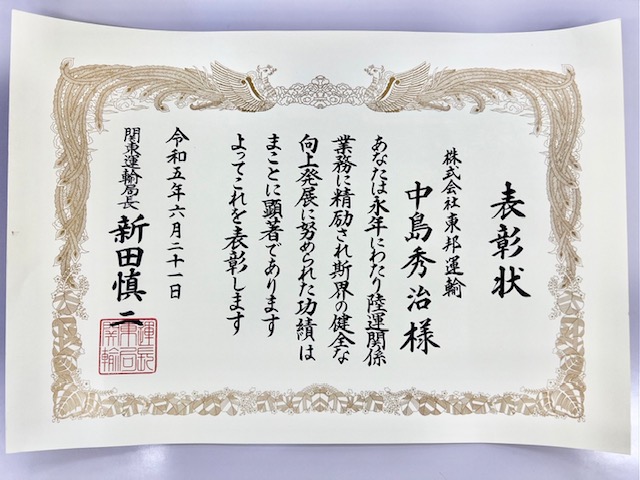 表彰状
株式会社東邦運輸
中島秀治様
あなたは永年にわたり陸運関係
業務に精励され斯界の健全な
向上発展に努められた功績は
まことに顕著であります
よってこれを表彰します
令和五年六月二十一日
関東運輸局長
新田慎二